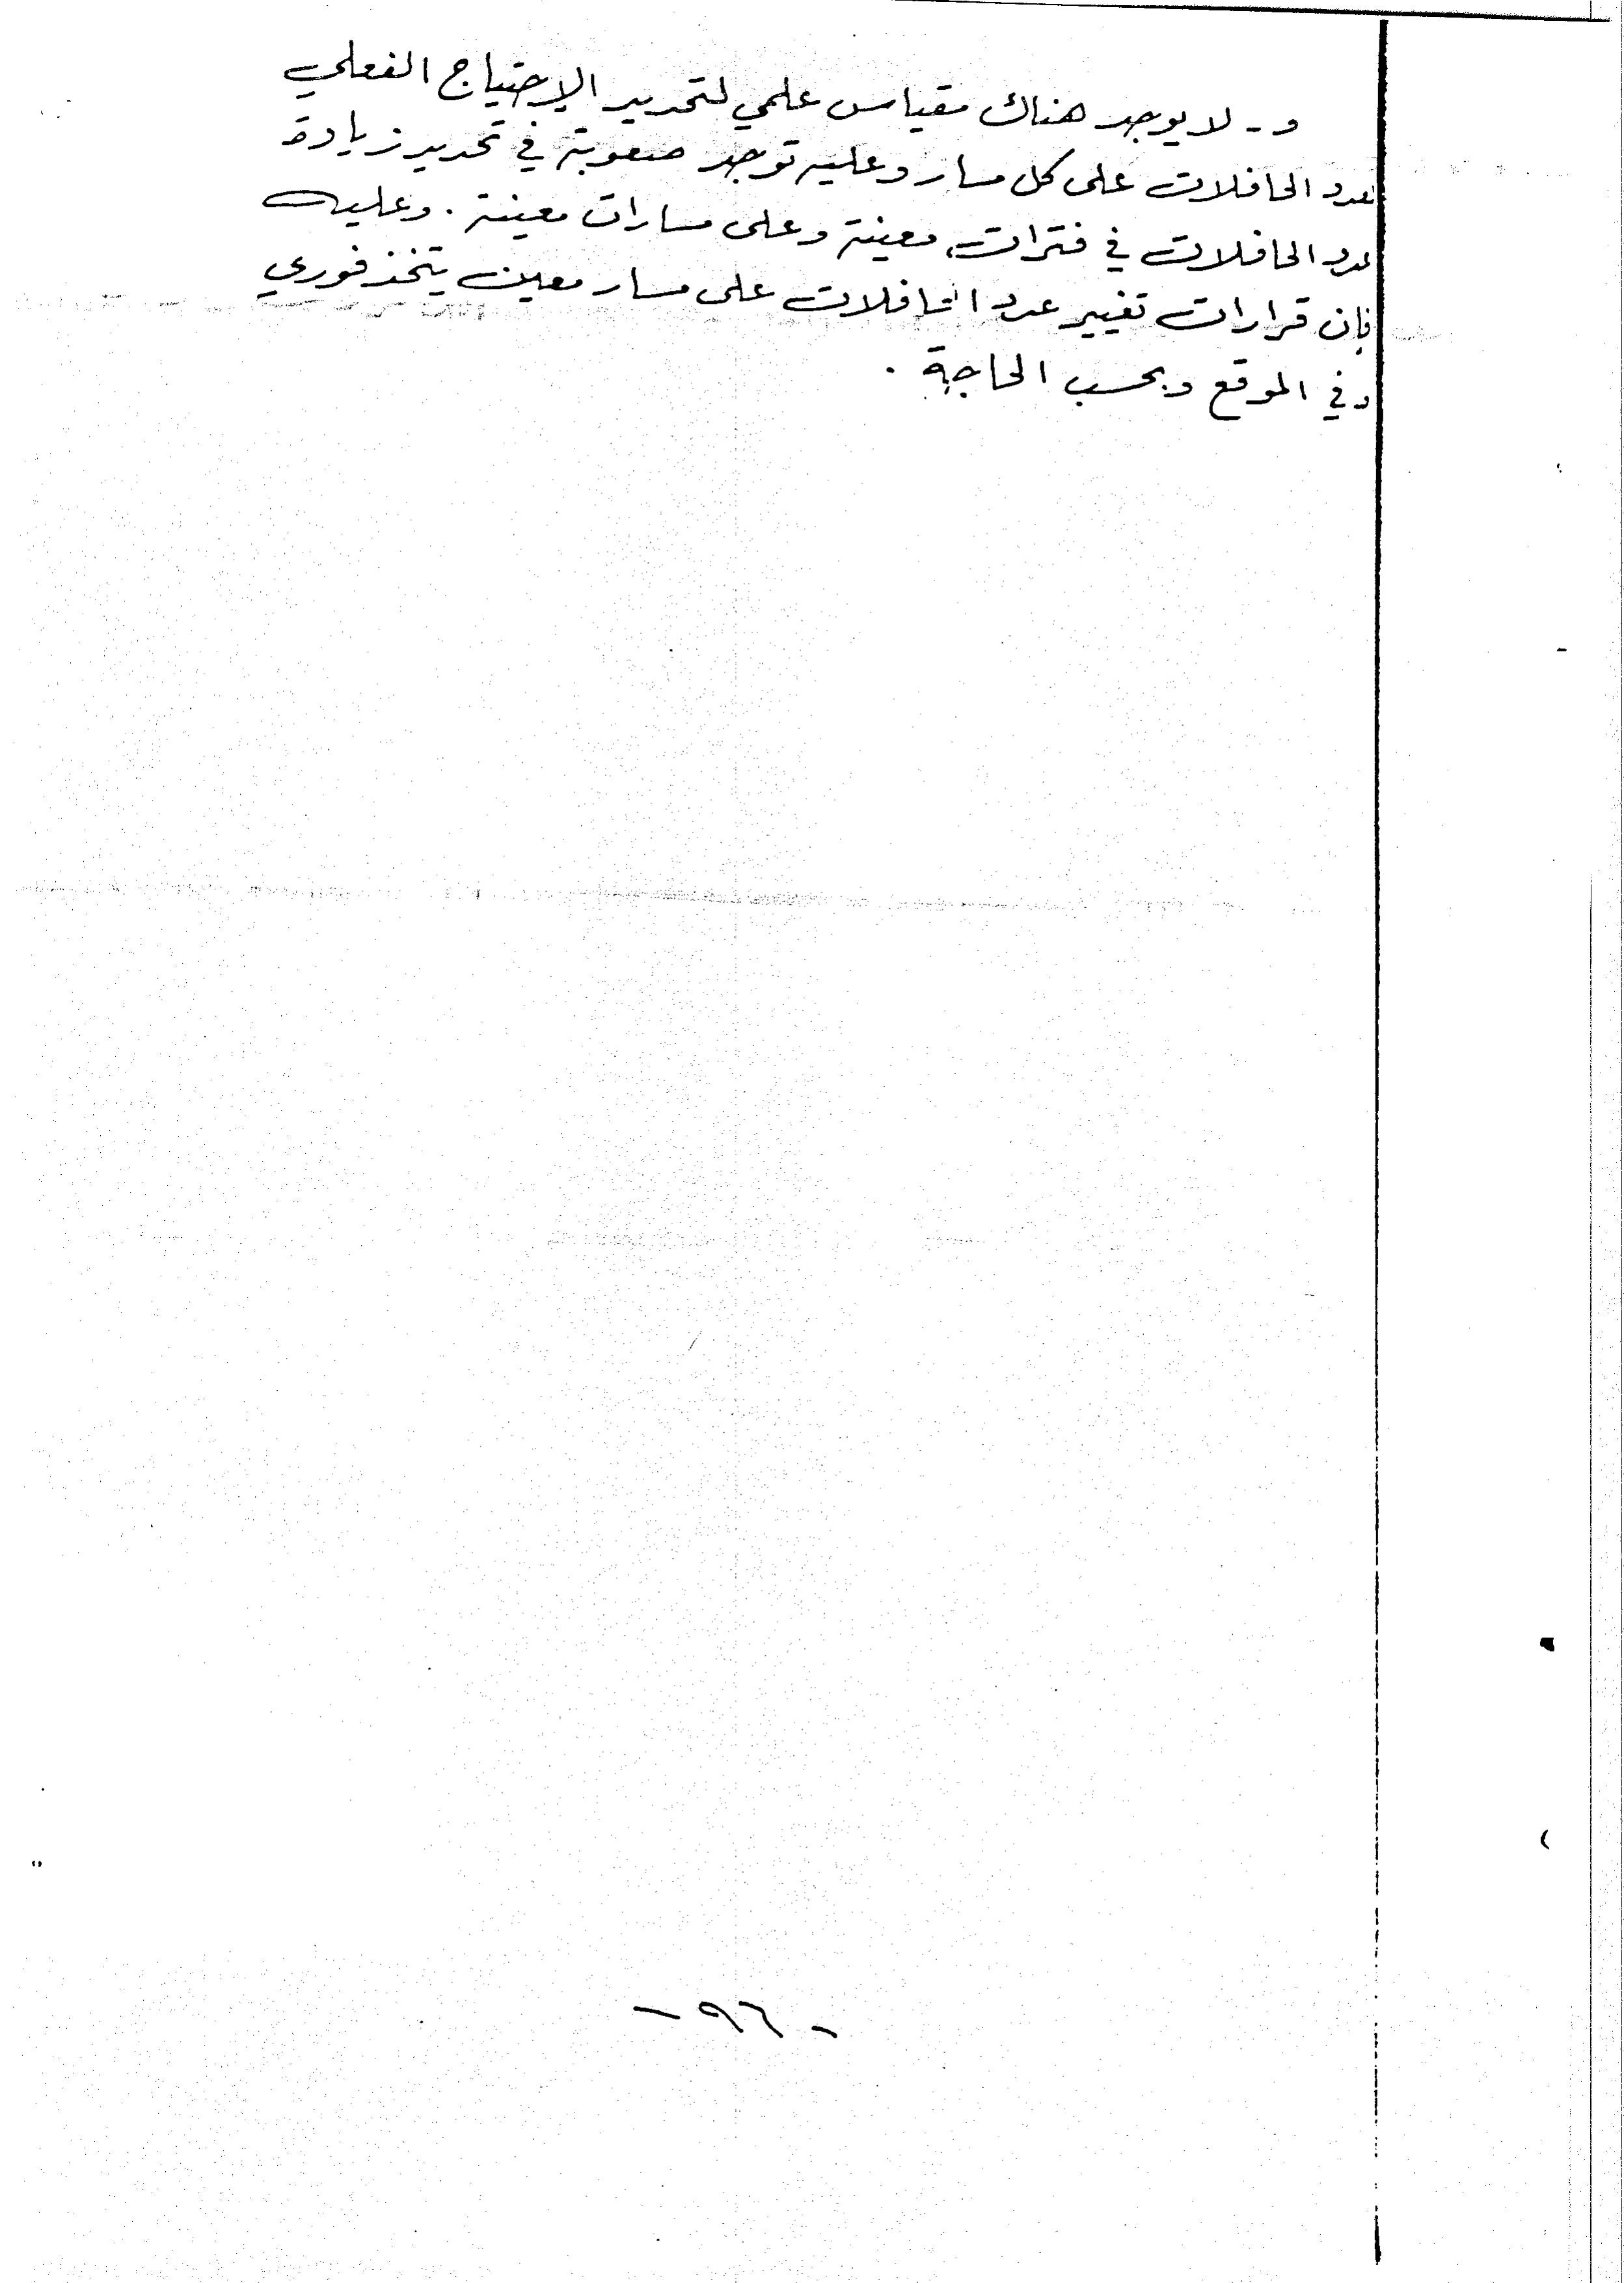 و - لا يوجد هناك مقياس علمي لتحديد الإحتياج الفعلي
لعدد الحافلات على كل مسار وعليه توجد صعوبة في تحديد زيادة
عدد الحافلات في فترات معينة وعلى مسارات معينة . وعليه
فإن قرارات تغيير عدد الحافلات على مسار معين يتخذ فوري
وفي الموقع وبحسب الحاجة .
- ٩٦ -